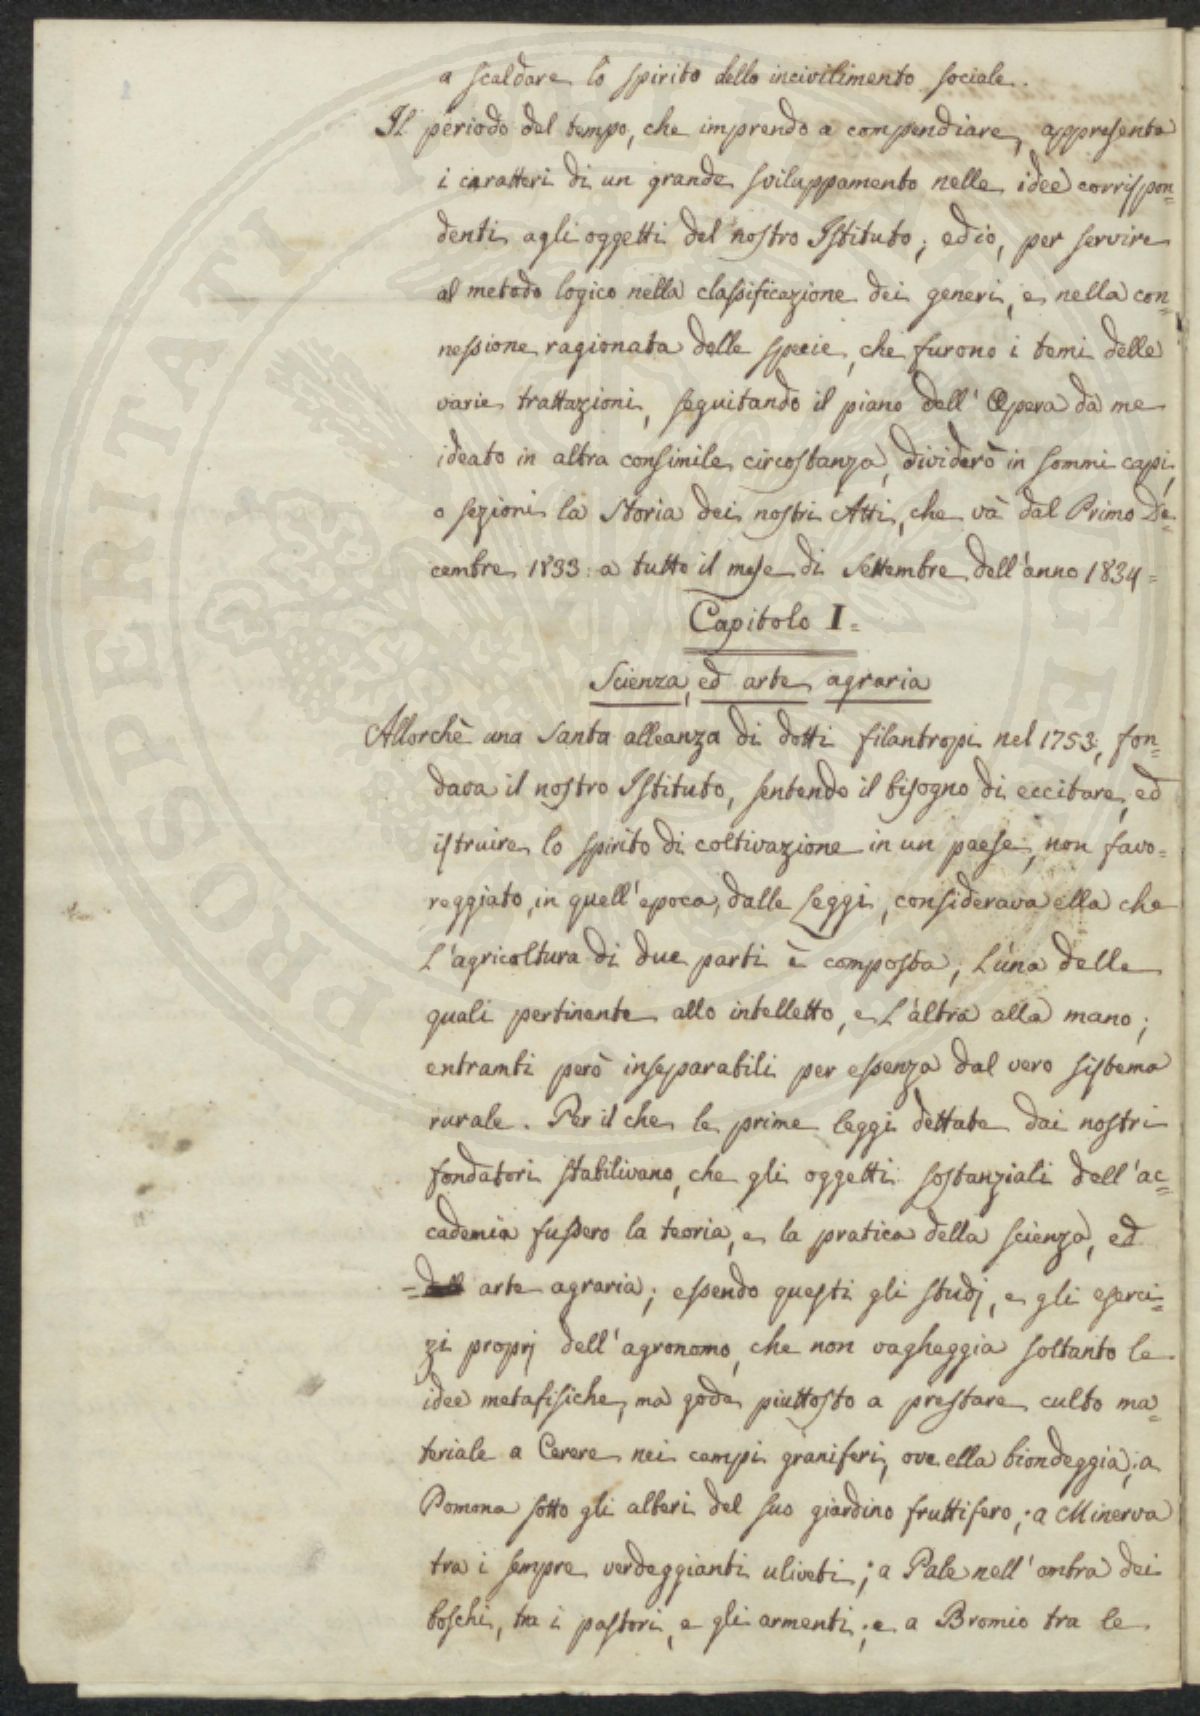 a scaldare lo spirito dello incivilimento sociale.
Il periodo del tempo, che imprendo a compendiare, appresenta
i caratteri di un grande sviluppamento nelle idee corrispon=
denti agli oggetti del nostro Istituto; ed io, per servire
al metodo logico nella classificazione dei generi, e nella con=
nessione ragionata delle specie, che furono i temi delle
varie trattazioni, seguitando il piano dell' Opera da me
ideato in altra consimile circostanza, dividerò in sommi capi,
o sezioni la Storia dei nostri Atti, che và dal Primo De=
cembre 1833: a tutto il mese di Settembre dell'anno 1834=
Capitolo I=
Scienza, ed arte agraria
Allorchè una santa alleanza di dotti filantropi nel 1753:, fon=
dava il nostro Istituto, sentendo il bisogno di eccitare, ed
istruire lo spirito di coltivazione in un paese, non favo=
reggiato, in quell' epoca, dalle Leggi, considerava ella che
L'agricoltura di due parti è composta; L'una delle
quali pertinente allo intelletto, e L'altra alla mano;
entrambi però inseparabili per essenza dal vero sistema
rurale. Per il che le prime leggi dettate dai nostri
fondatori stabilivano, che gli oggetti sostanziali dell' ac=
cademia fussero la teoria, e la pratica della scienza, ed
= arte agraria; essendo questi gli studj, e gli eserci=
zi proprj dell' agronomo, che non vagheggia soltanto le
idee metafisiche, ma gode piuttosto a prestare culto ma=
teriale a Cerere nei campi graniferi, ove ella biondeggia; a
Pomona sotto gli alberi del suo giardino fruttifero; a Minerva
tra i sempre verdeggianti uliveti; a Pale nell' ombra dei
boschi, tra i pastori, e gli armenti; e a Bromio tra le
PROSPERITATI PUBLICAE AUGENDAE